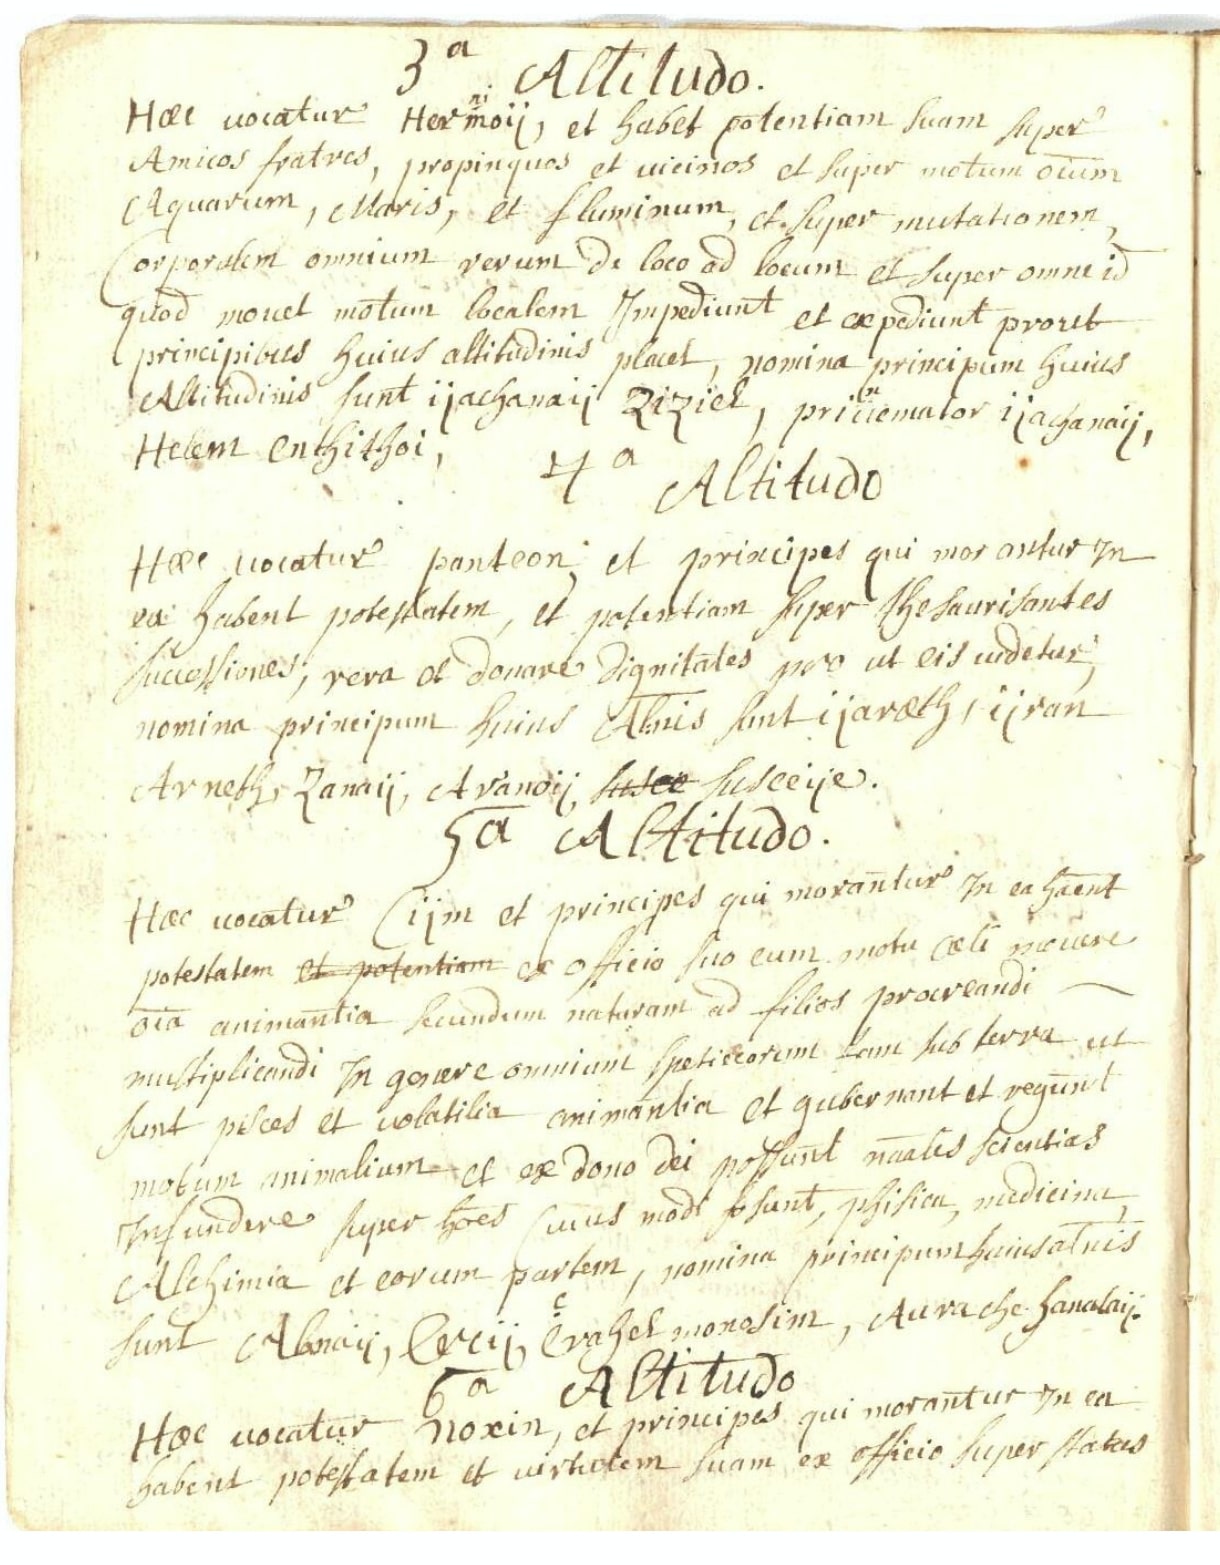 3ᵃ Altitudo.
Hæc vocatur Hermoij, et habet potentiam suam super
Amicos fratres, propinquos et uicinos et super motum oium
Aquarum, Maris, et fluminum, et super mutationem,
Corporalem omnium rerum de loco ad locum et super omne id
quod mouet motum localem Impediunt et expediunt prout
principibus huius altitudinis placet, nomina principum huius
Altitudinis sunt ijachanaij Ziziel, ijachanaij,
Helem Enthithoi,
4ᵃ Altitudo
Hæc uocatur panteon, et principes qui morantur In
ea habent potestatem, et potentiam super thesaurisantes
successiones, rera et donare dignitates pro ut eis uidetur,
nomina principum huius Altnis sunt ijaræth, ijran
Arneth, Zanaij, Aranoij, susce susceije.
5ᵃ Altitudo.
Hæc uocatur Ciijm et principes qui morantur In ea haent
potestatem et potentiam ex officio suo cum motu cæli mouere
oia animantia secundum naturam ad filios procreandi
multiplicandi In genere omnium spetieorum tam sub terra ut
sunt pisces et uolatilia animantia et gubernant et regunt
motum animalium et ex dono dei possunt naales scientias
Infundere super hoes Cuius modi sunt, phisica, medicina,
Alchimia et eorum partem, nomina principum huius atnis
sunt Abnaij, Erahel monosim, Aurache hanalaij.
6ᵃ Altitudo
Hæc uocatur Noxin, et principes qui morantur In ea
habent potestatem et uirtutem suam ex officio super status